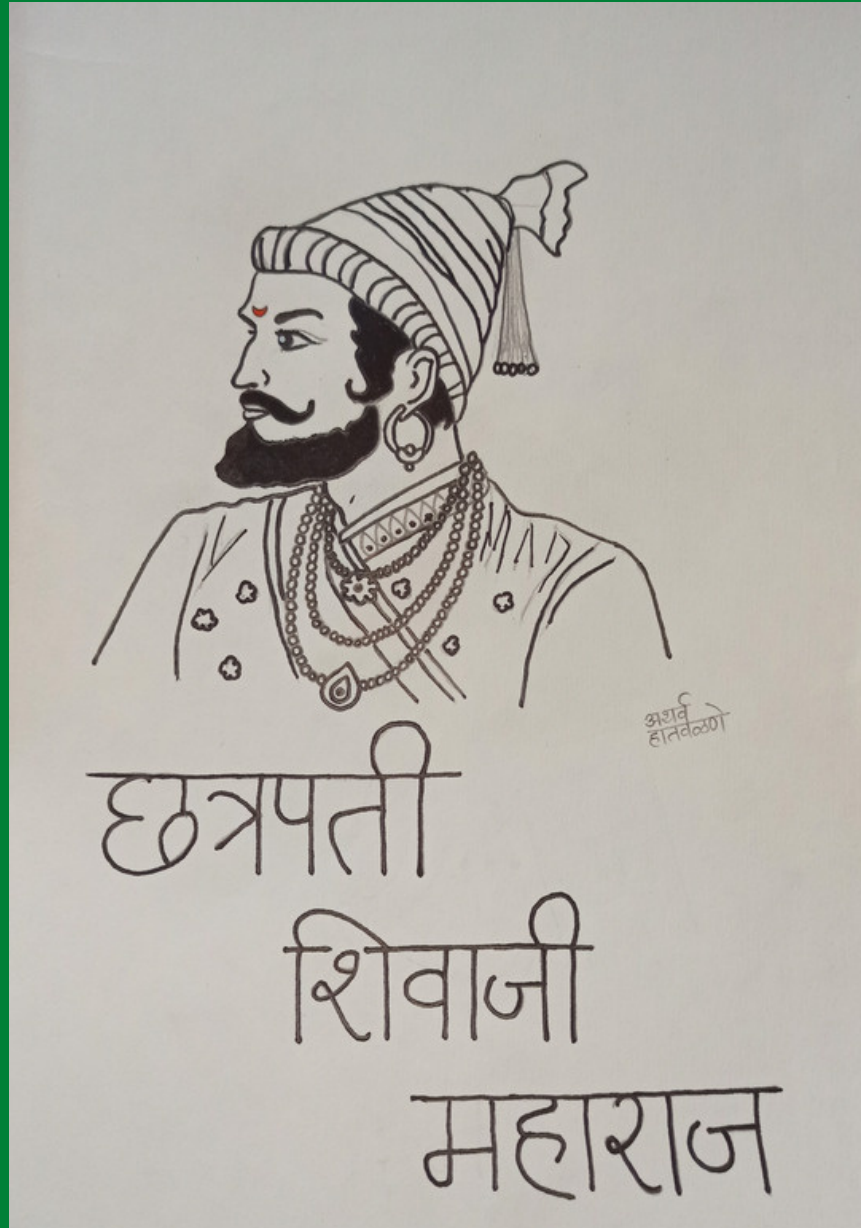 अथर्व
हातवळणे
छत्रपती
शिवाजी
महाराज